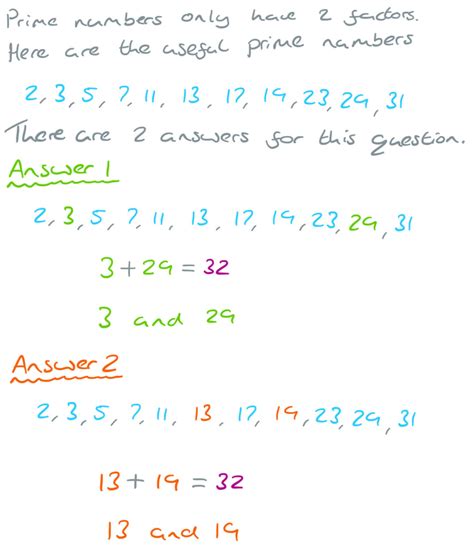 Prime numbers only have 2 factors.
Here are the useful prime numbers
2, 3, 5, 7, 11, 13, 17, 19, 23, 29, 31
There are 2 answers for this question.
Answer 1
2, 3, 5, 7, 11, 13, 17, 19, 23, 29, 31
3 + 29 = 32
3 and 29
Answer 2
2, 3, 5, 7, 11, 13, 17, 19, 23, 29, 31
13 + 19 = 32
13 and 19